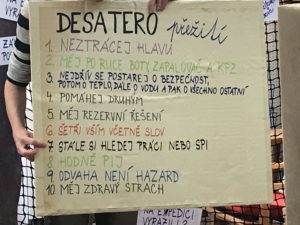 DESATERO přežití
1. NEZTRÁCEJ HLAVU
2. MĚJ PO RUCE BOTY, ZAPALOVAČ A KPZ
3. NEJDŘÍV SE POSTAREJ O BEZPEČNOST,
POTOM O TEPLO, DÁLE O VODU A PAK O VŠECHNO OSTATNÍ
4. POMÁHEJ DRUHÝM
5. MĚJ REZERVNÍ ŘEŠENÍ
6. ŠETŘI VŠÍM VČETNĚ SLOV
7. STÁLE SI HLEDEJ PRÁCI NEBO SPI
8. HODNĚ PIJ
9. ODVAHA NENÍ HAZARD
10. MĚJ ZDRAVÝ STRACH
NA EXPEDICI
VYRAZILI Z